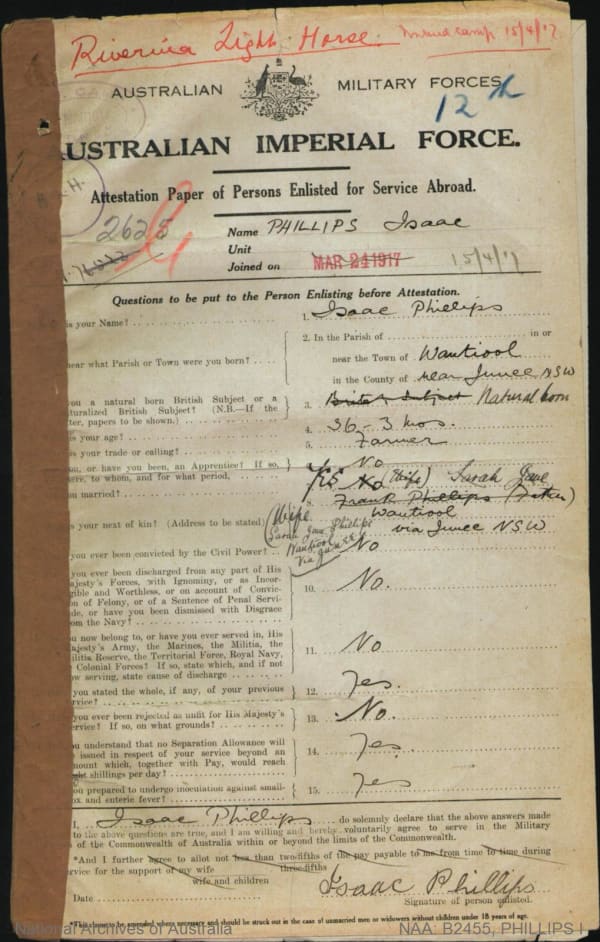 Riverina Light Horse. camp 15/4/17
AUSTRALIAN MILITARY FORCES
12th
USTRALIAN IMPERIAL FORCE.
Attestation Paper of Persons Enlisted for Service Abroad.
2628
Name PHILLIPS Isaac
Unit
Joined on MAR 24 1917 15/4/17
Questions to be put to the Person Enlisting before Attestation.
is your Name? 1. Isaac Phillips
2. In the Parish of in or
near what Parish or Town were you born? near the Town of Wantiool
in the County of near Junee NSW
you a natural born British Subject or a
turalized British Subject? (N.B.—If the 3. British Subject Natural born
ter, papers to be shown.)
is your age? 4. 36 - 3 mos.
is your trade or calling? 5. Farmer
ou, or have you been, an Apprentice? If so, No
ere, to whom, and for what period,
you married? No (Wife) Sarah Jane
8. Frank Phillips (Father)
is your next of kin? (Address to be stated) Wantiool
via Junee NSW
(Wife
Sarah Jane Phillips
Wantiool
Via Junee
you ever been convicted by the Civil Power? No
you ever been discharged from any part of His
ajesty's Forces, with Ignominy, or as Incor-
gible and Worthless, or on account of Convic-
on of Felony, or of a Sentence of Penal Servi-
de, or have you been dismissed with Disgrace
om the Navy? 10. No.
u now belong to, or have you ever served in, His
ajesty's Army, the Marines, the Militia, the
ilitia Reserve, the Territorial Force, Royal Navy,
Colonial Forces? If so, state which, and if not
ow serving, state cause of discharge 11. No
you stated the whole, if any, of your previous
rvice? 12. Yes.
you ever been rejected as unfit for His Majesty's
ervice? If so, on what grounds? 13. No.
u understand that no Separation Allowance will
issued in respect of your service beyond an
mount which, together with Pay, would reach
ght shillings per day? 14. Yes
you prepared to undergo inoculation against small-
ox and enteric fever? 15. Yes
I, Isaac Phillips do solemnly declare that the above answers made
to the above questions are true, and I am willing and hereby voluntarily agree to serve in the Military
s of the Commonwealth of Australia within or beyond the limits of the Commonwealth.
*And I further agree to allot not less than two-fifths of the pay payable to me from time to time during
three-fifths
rvice for the support of my wife
wife and children
Isaac Phillips
Date Signature of person enlisted.
*This clause to be amended where necessary and should be struck out in the case of unmarried men or widowers without children under 18 years of age.
National Archives of Australia NAA: B2455, PHILLIPS I